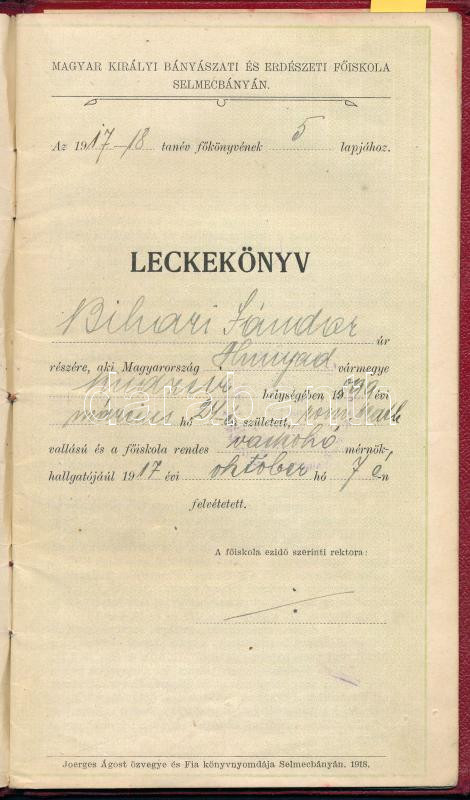 MAGYAR KIRÁLYI BÁNYÁSZATI ÉS ERDÉSZETI FŐISKOLA
SELMECBÁNYÁN.
Az 1917–18 tanév főkönyvének 5 lapjához.
LECKEKÖNYV
Bihari Sándor úr
részére, aki Magyarország Hunyad vármegye
helységében 1899 évi
március hó 24 én született, rom. kath.
vallású és a főiskola rendes vaskohó mérnök-
hallgatójáúl 1917 évi október hó 7 é-n
felvétetett.
A főiskola ezidő szerinti rektora:
Joerges Ágost özvegye és Fia könyvnyomdája Selmecbányán. 1918.